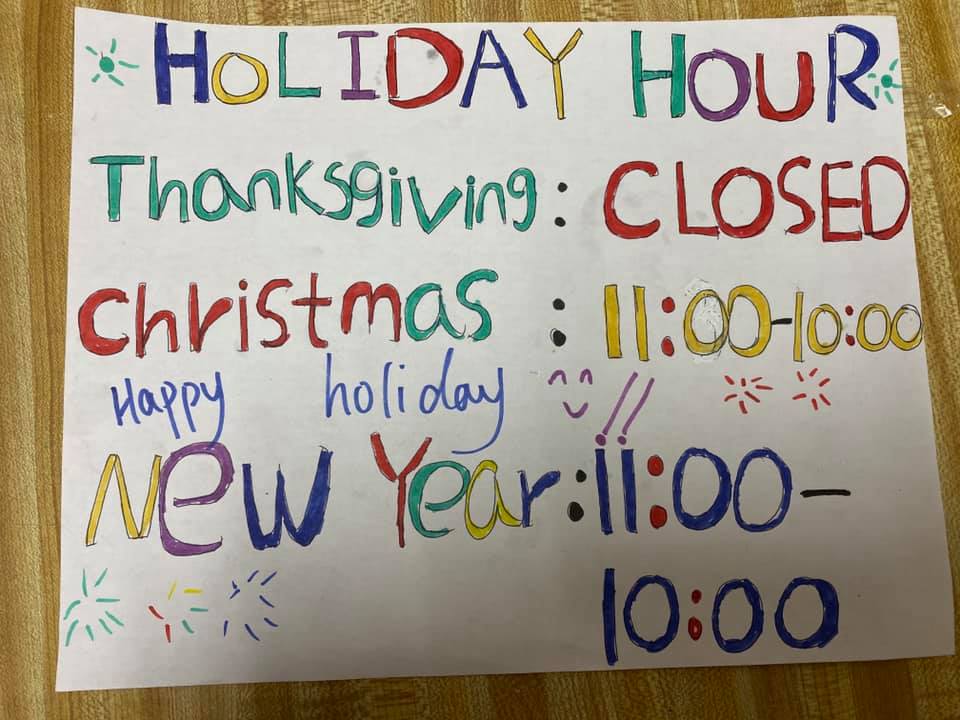 HOLIDAY HOUR
Thanksgiving: CLOSED
Christmas : 11:00-10:00
Happy holiday ^^ !!
New Year: 11:00-
10:00